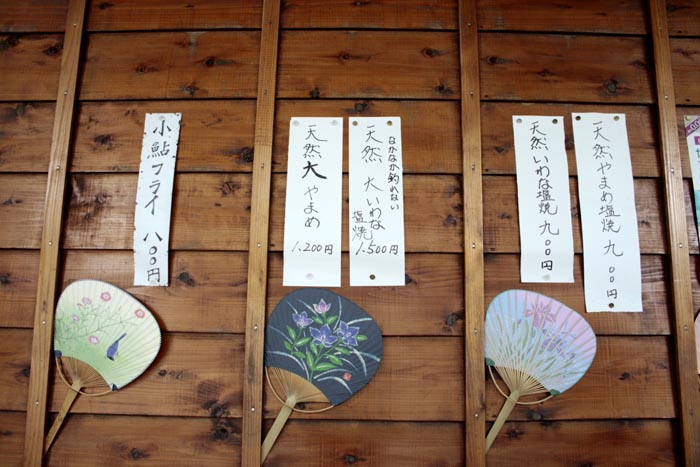 天然やまめ塩焼 九〇〇円
天然いわな塩焼 九〇〇円
なかなか釣れない
天然 大いわな
塩焼
1,500円
天然 大 やまめ
1,200円
小鮎フライ 八〇〇円